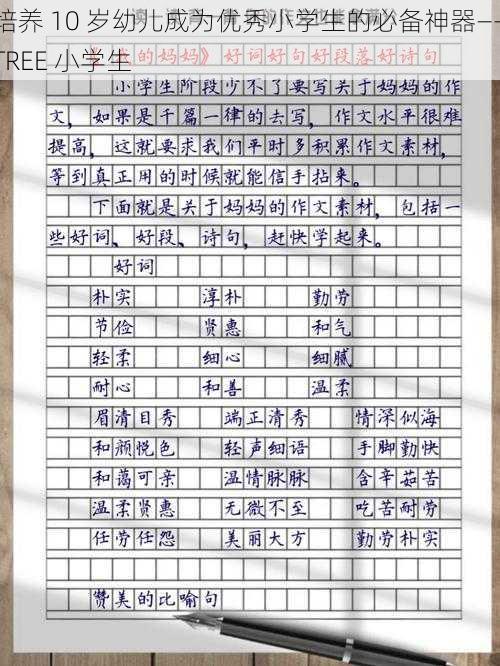 培养 10 岁幼儿成为优秀小学生的必备神器——
TREE 小学生
的妈妈》好词好句好段落好诗句
小学生阶段少不了要写关于妈妈的作
文，如果是千篇一律的去写，作文水平很难
提高，这就要求我们平时多积累作文素材，
等到真正用的时候就能信手拈来。
下面就是关于妈妈的作文素材，包括一
些好词、好段、诗句，赶快学起来。
好词
朴实 淳朴 勤劳
节俭 贤惠 和气
轻柔 细心 细腻
耐心 和善 温柔
眉清目秀 端正清秀 情深似海
和颜悦色 轻声细语 手脚勤快
和蔼可亲 温情脉脉 含辛茹苦
温柔贤惠 无微不至 吃苦耐劳
任劳任怨 美丽大方 勤劳朴实
赞美的比喻句